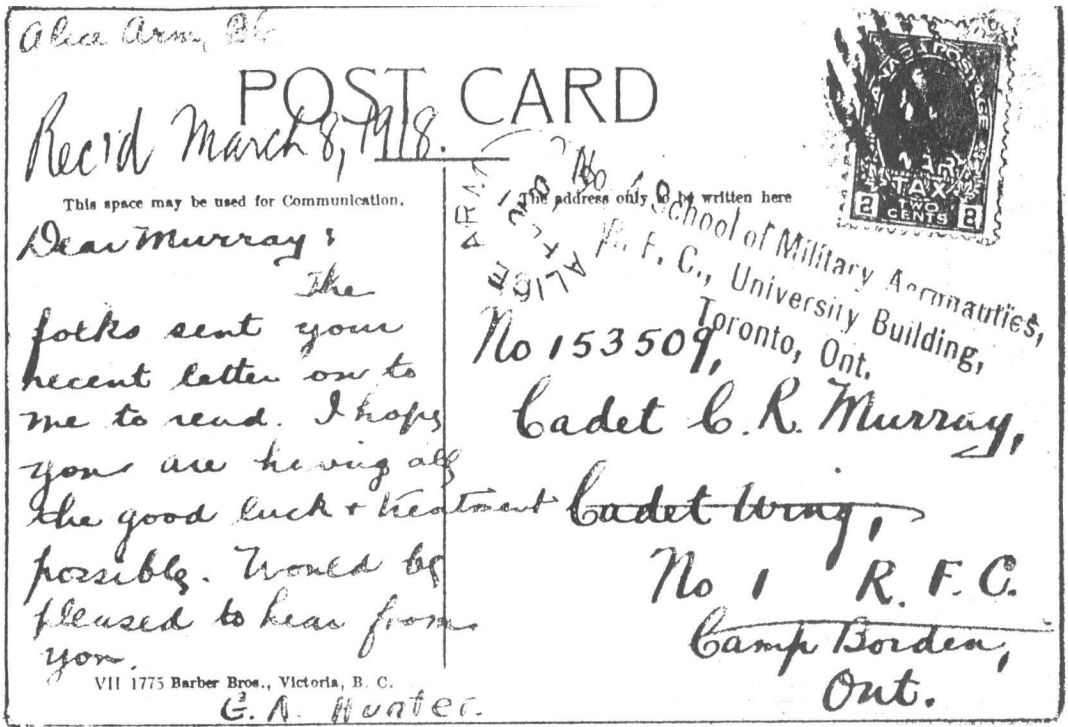 Alice Arm, BC
POST CARD
Rec'd March 8, 1918.
This space may be used for Communication.
The address only to be written here
Dear Murray:
The
folks sent your
recent letter on to
me to read. I hope
you are having all
the good luck + treatment
possible. Would be
pleased to hear from
you.
VII 1775 Barber Bros., Victoria, B. C.
G. N. Hunter.
CANADA POSTAGE
WAR
TAX
TWO
CENTS
2 2
ALICE ARM
School of Military Aeronautics,
R. F. C., University Building,
Toronto, Ont.
No 153509,
Cadet C. R. Murray,
Cadet Wing,
No 1 R. F. C.
Camp Borden,
Ont.